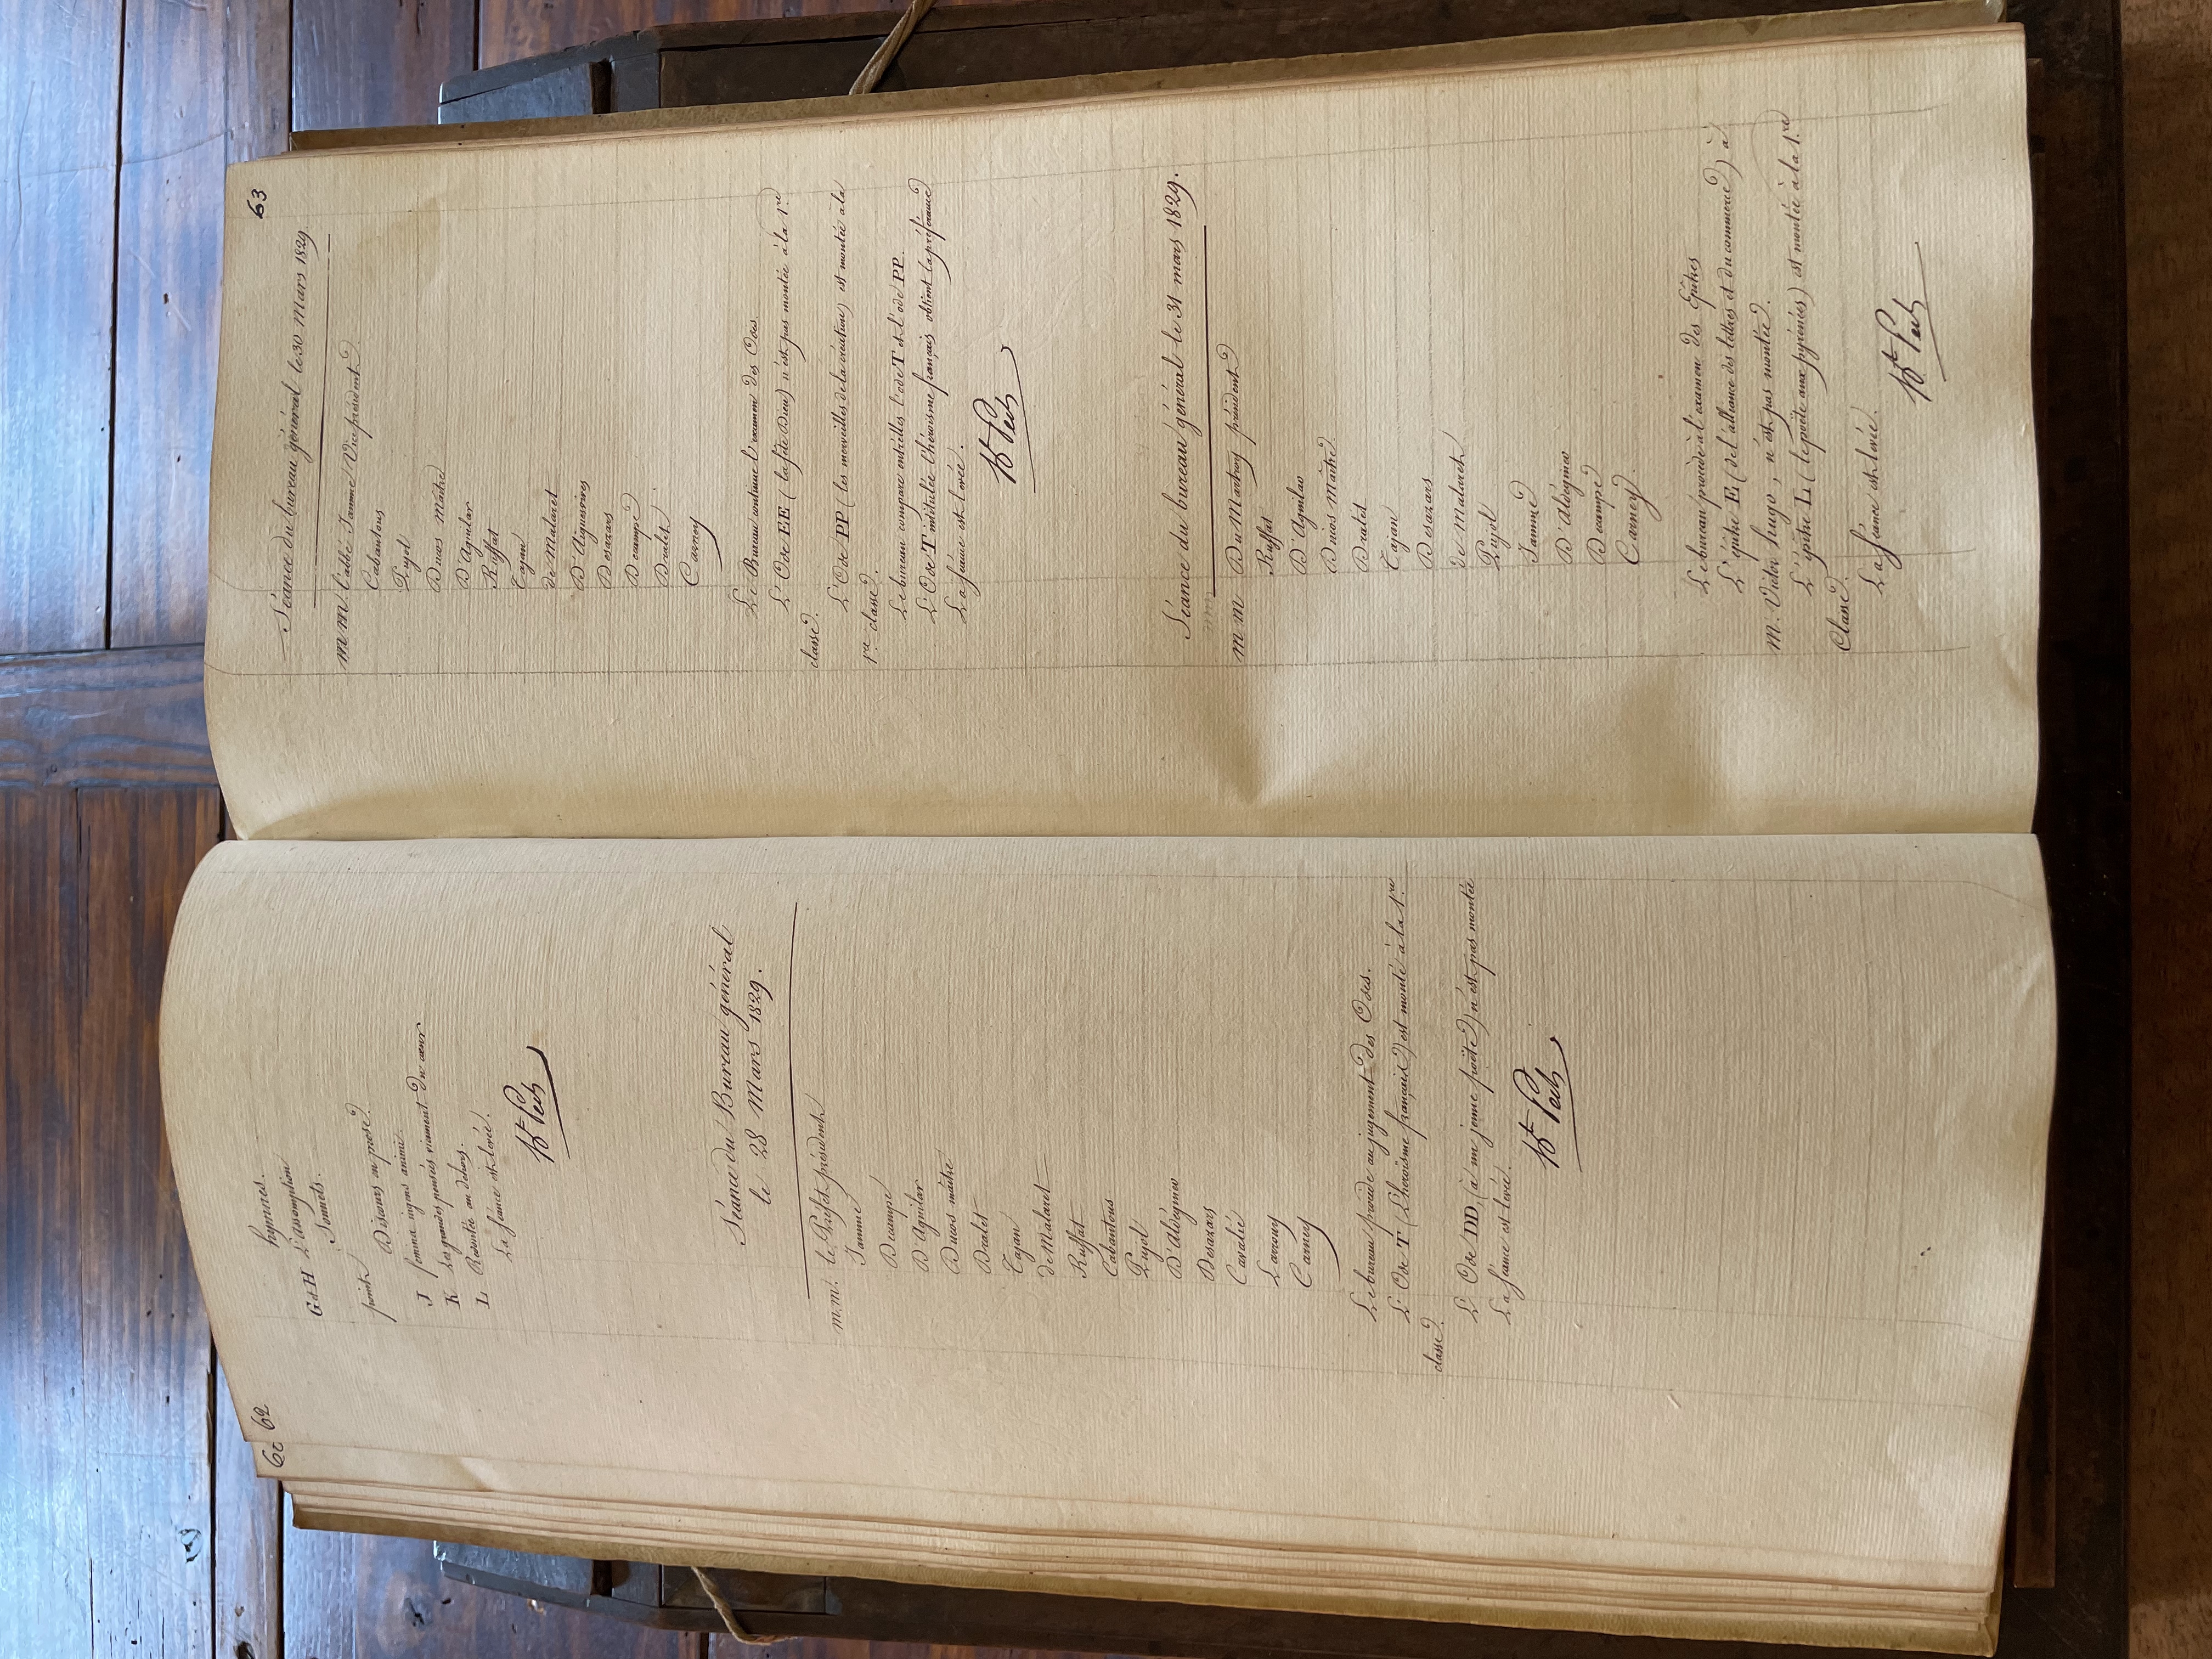 62
62
hymnes.
G et H L'assomption
Sonnets.
point
Discours en prose.
J femina ingens animi.
K Les grandes pensées viennent du cœur
L Redoutée au dehors.
La séance est levée.
Séance du Bureau général
le 28 Mars 1829.
m.m. le Préfet président
Jamme
Decampe
D'Aguilar
Ducos maître
Dralet
Tajan
de Malaret
Ruffat
Cabantous
Pujol
D'Aldéguier
Desazars
Cavalié
Larrouy
Carney
Le bureau procède au jugement des Odes.
L'Ode T (L'héroïsme français) est monté à la 1re
classe.
L'Ode DD, (à un jeune poète) n'est pas montée
La séance est levée.
63
Séance du bureau général le 30 Mars 1829.
m m. l'abbé Jamme / Vice président
Cabantous
Pujol
Ducos maître
D'Aguilar
Ruffat
Tajan
de Malaret
D'Aiguesvives
Desazars
Decampe
Dralet
Carney
Le Bureau continue l'examen des Odes.
L'Ode EE (la fête Dieu) n'est pas montée à la 1re
classe.
L'Ode PP (les merveilles de la création) est montée à la
1re classe.
Le bureau compare entr'elles l'ode T et l'ode PP.
L'Ode T intitulée l'héroïsme français obtient la préférence
La séance est levée.
Séance du bureau général le 31 mars 1829.
m m Du Martroy président
Ruffat
D'Aguilar
Ducos Maître
Dralet
Tajan
Desazars
de Malaret
Pujol
Jamme
D'Aldéguier
Decampe
Carney.
Le bureau procède à l'examen des Epitres
L'épitre E (de l'alliance des lettres et du commerce) à
m. Victor hugo, n'est pas montée.
L'épitre L (le poète aux pyrénées) est montée à la 1re
Classe.
La séance est levée.